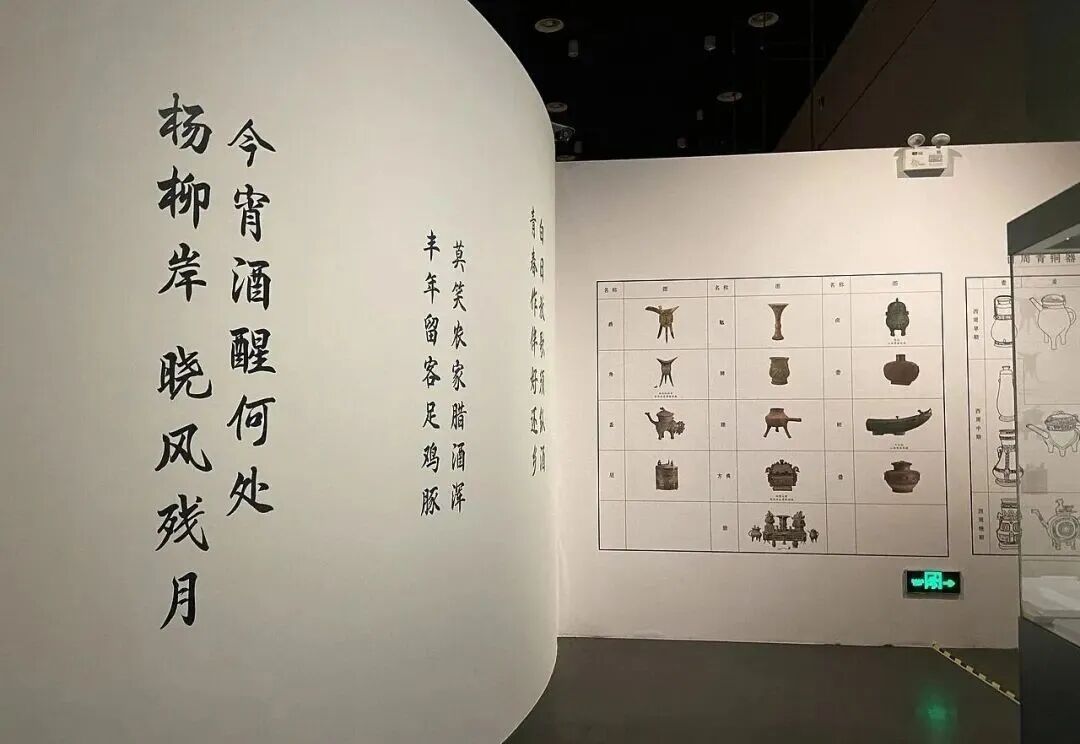 今宵酒醒何处
杨柳岸 晓风残月
莫笑农家腊酒浑
丰年留客足鸡豚
白日放歌须纵酒
青春作伴好还乡
名称 图 名称 图 名称 图
爵 觚 卣
角
盉
周青铜器
壶 盉
西周早期
西周中期
西周晚期